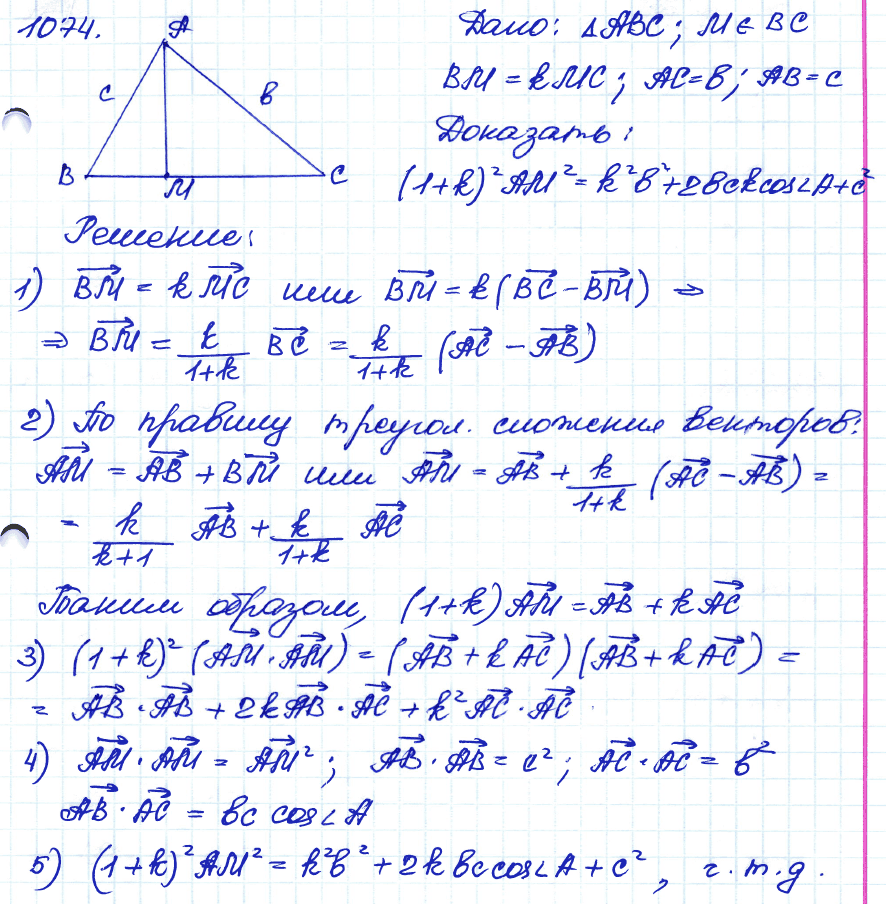 1074.
A
c
b
B
M
C
Дано: △ABC; M ∈ BC
BM = kMC; AC = b; AB = c
Доказать:
(1+k)²AM² = k²b² + 2bck cos∠A + c²
Решение:
1) B͞M͞→ = k MC→ или BM→ = k(BC→ − BM→) ⇒
⇒ BM→ = k/(1+k) BC→ = k/(1+k) (AC→ − AB→)
2) По правилу треугол. сложения векторов:
AM→ = AB→ + BM→ или AM→ = AB→ + k/(1+k) (AC→ − AB→) =
= k/(k+1) AB→ + k/(1+k) AC→
Таким образом, (1+k)AM→ = AB→ + kAC→
3) (1+k)² (AM→ · AM→) = (AB→ + kAC→)(AB→ + kAC→) =
= AB→ · AB→ + 2kAB→ · AC→ + k²AC→ · AC→
4) AM→ · AM→ = AM→²; AB→ · AB→ = c²; AC→ · AC→ = b²
AB→ · AC→ = bc cos∠A
5) (1+k)²AM² = k²b² + 2kbc cos∠A + c², ч.т.д.